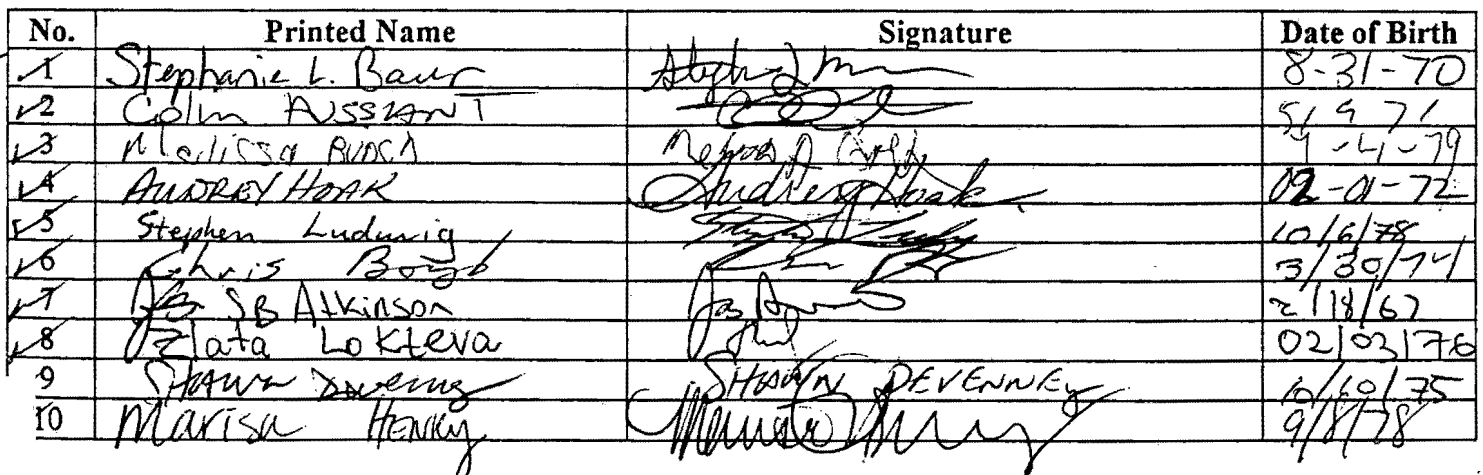 No. Printed Name Signature Date of Birth
1 Stephanie L. Baur 8-31-70
2 Colin AUSSIANT 5/9/71
3 Melissa 9-4-79
4 AUDREY HOAK Audrey Hoak 02-01-72
5 Stephen Ludwig 10/6/78
6 Chris 3/30/74
7 SB Atkinson 2/18/67
8 Zlata Lokteva 02/03/76
9 SHAWN SHAWN DEVENNEY 10/10/75
10 Marisa HENRY 9/8/78